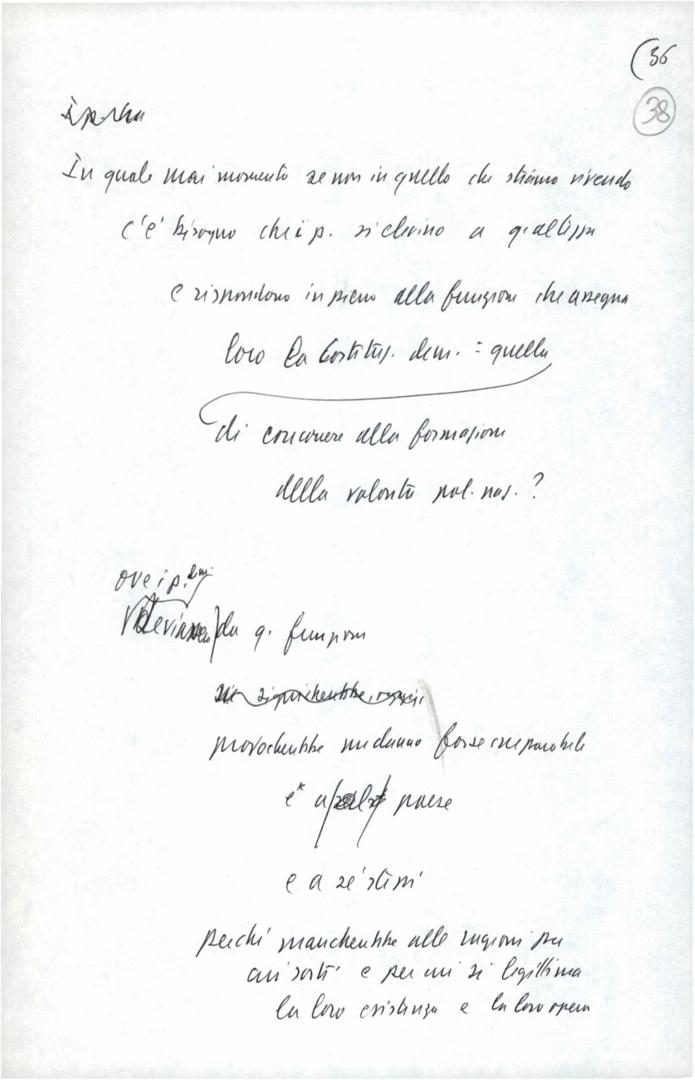 (36
38
In quale mai momento se non in quello che stiamo vivendo
c'è bisogno che i p. si elevino a q. altezza
e rispondono in pieno alla funzione che assegna
loro la Costituz. dem. = quella
di concorrere alla formazione
della volontà pol. naz. ?
ove i p.
da q. funzioni
provocherebbe un danno forse irreparabile
e a paese
e a se' stessi
perché mancherebbe alle ragioni per
cui sorti e per cui si legittima
la loro esistenza e la loro opera